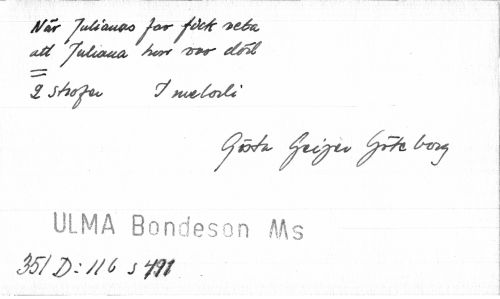 När Julianas far fick veta
att Juliana hon var död
=
2 strofer 1 melodi
Gösta Geijer Göteborg
ULMA Bondeson Ms
351 D: 116 s 491